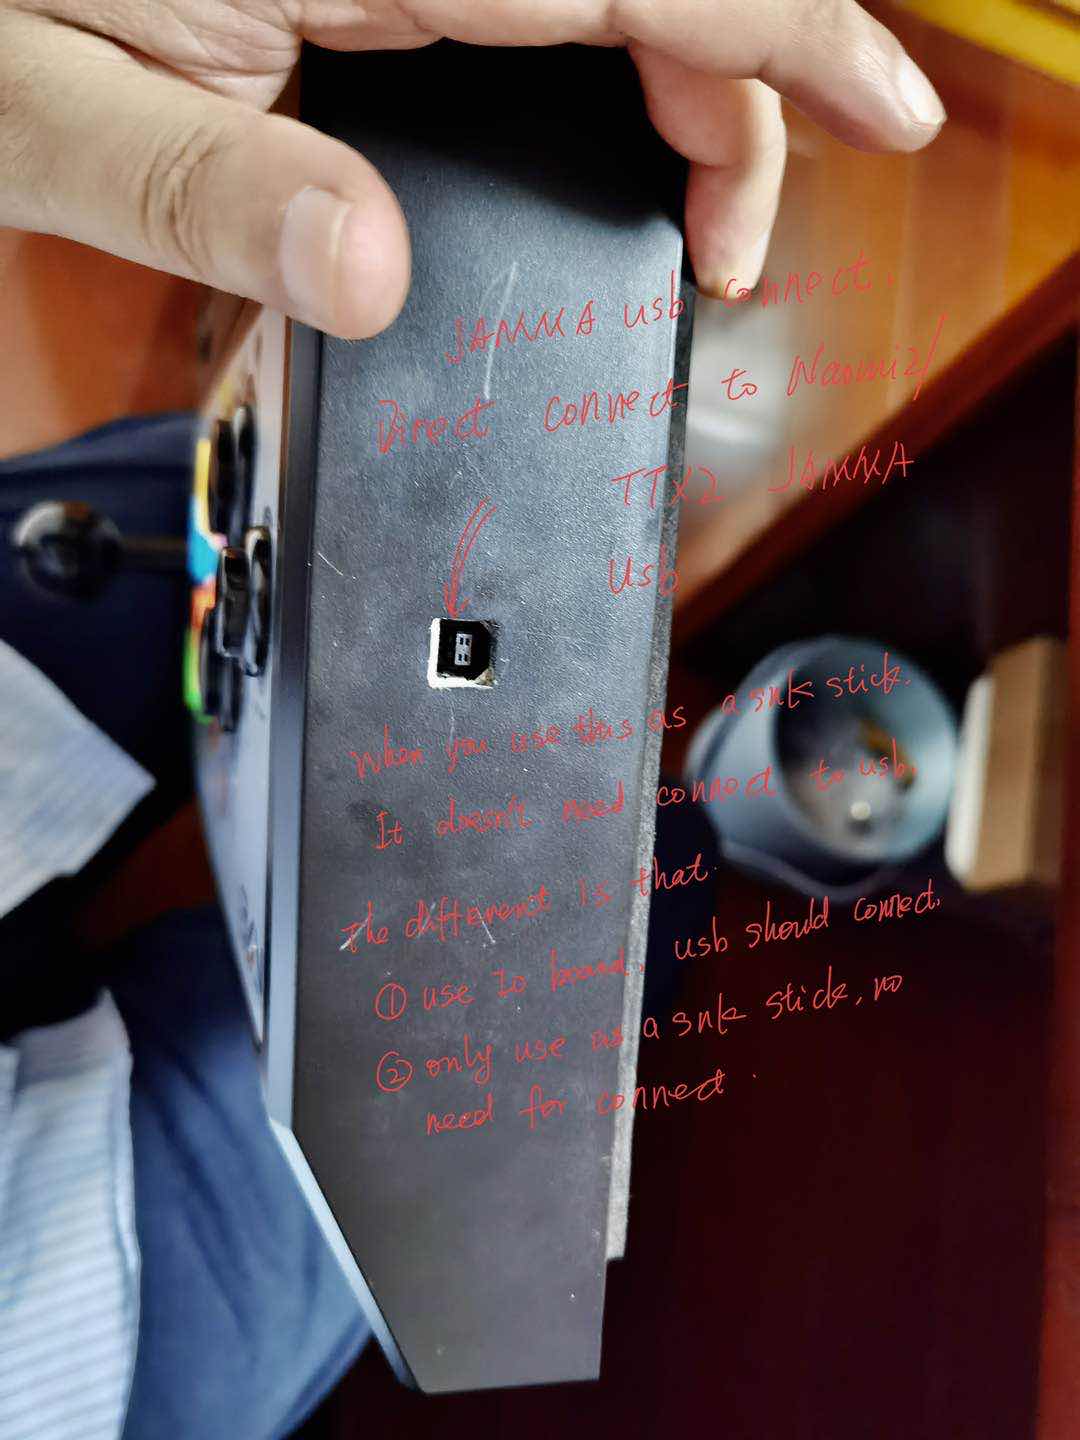 JAMMA usb connect.
Direct connect to Naomi2/
TTX2 JAMMA
Usb
When you use this as a snk stick.
It doesn't need connect to usb.
The different is that.
① use Io board, usb should connect.
② only use as a snk stick, no
need for connect.